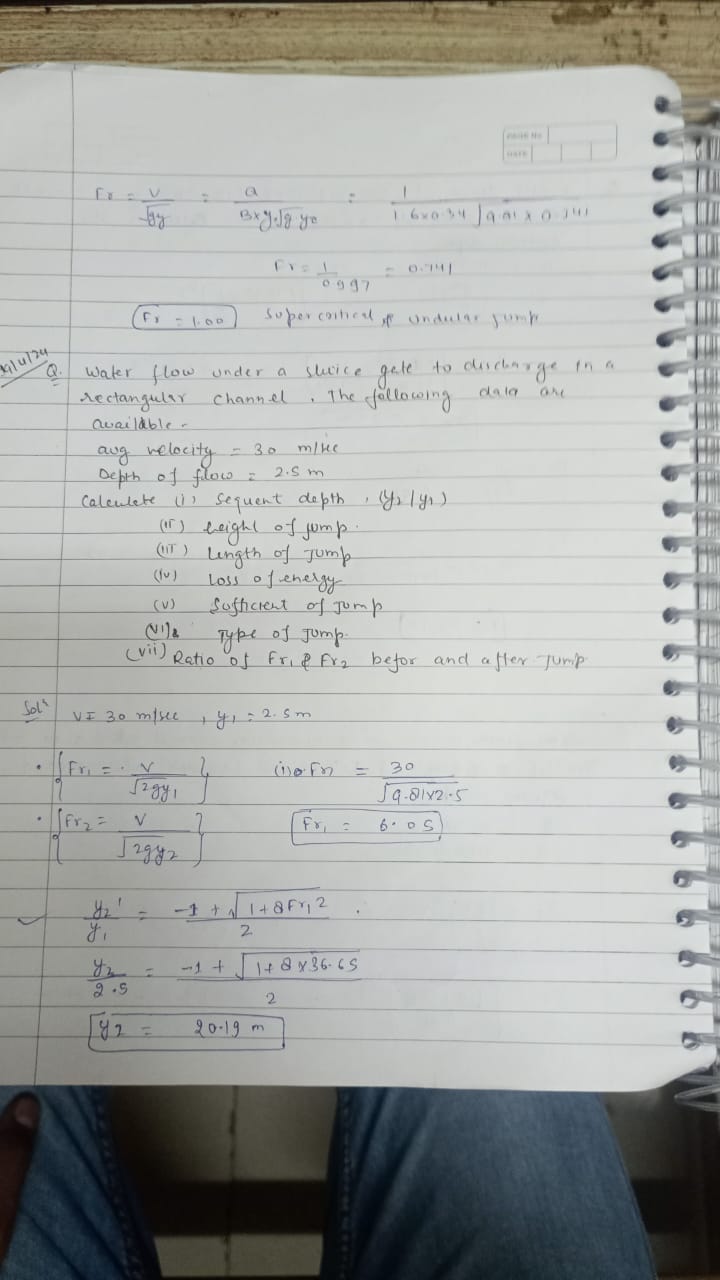 PAGE No
DATE
Fr = V/√gy = Q/B×y√g y0 = 1/1.6×0.34 √9.81×0.341
Fr = 1/0.997 = 0.741
Fr = 1.00 Super coitical undular jump
Q. Water flow under a sluice gate to discharge in a
rectangular channel. The following data are
available -
avg velocity = 30 m/sec
Depth of flow = 2.5 m
Calculete (i) Sequent depth, (y2/y1)
(ii) height of jump.
(iii) length of Jump
(iv) Loss of energy
(v) Sufficient of Jump
(vi) Type of Jump.
(vii) Ratio of Fr1 & Fr2 befor and after Jump
Solⁿ V= 30 m/sec, y1 = 2.5m
• {Fr1 = V/√2gy1} (i) Fr1 = 30/√9.81×2.5
• {Fr2 = V/√2gy2} Fr1 = 6.05
y2/y1 = -1 + √1+8Fr1²/2
y2/2.5 = -1 + √1+8×36.65/2
y2 = 20.19 m